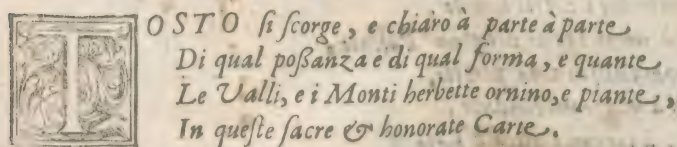 TOSTO ſi ſcorge, e chiaro à parte à parte
Di qual poßanza e di qual forma, e quante
Le Valli, e i Monti herbette ornino, e piante,
In queſte ſacre & honorate Carte.